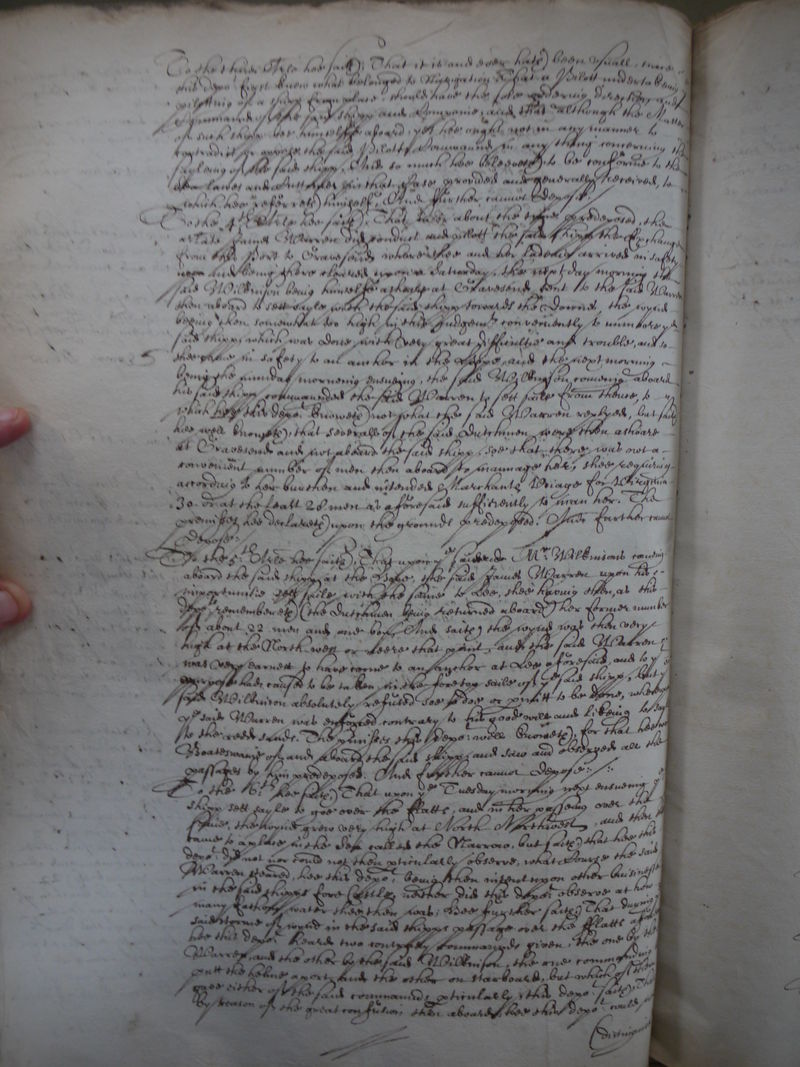 To the third Arle hee saith, That it is and ever hath been usuall, since
this depo.t first knew what belonged to Navigation, that a Pilott undertaking
pilotting of a shipp from place, should have the sole ordering direction and
command of the said shipp and Companie, and that although the Master
of such shipp bee himselfe aboard, yet hee ought not in any manner to
contradict or oppose the said Pilotts Command in any thing concerning the
sayling of the said shipp, And so much hee beleeveth to be conforme to the
Sea lawes and Customes in that Case provided and generally received, to
which hee referreth himselfe, And further cannot depose.
To the 4th Arle hee saith, That upon about the tyme predeposed, the
arlate James Warren did conduct and pilott the said shipp the Exchange
from this Port to Gravesend, where shee and her ladeing arrived in safety
and being there cleered upon a Saturday, the next day morning the
said Wilkinson being himselfe ashore at Gravesend sent to the said Warren
then aboard to sett sayle with the said shipp towards the Downes, the wynd
beeing then somewhat too high in this Judgem.t conveniently to unmoore the
said shipp, which was done with very great difficultie and trouble, and
shee came in safety to an anchor in the Hope, and the next morning
being the munday morneing ensueing, the said Wilkinson comeing aboard
his said shipp commaunded the said Warren to sett saile from thence, to
which hee this depo.t knoweth not what the said Warren replyed, but saith
hee well knoweth, that severall of the said Dutchmen were then ashoare
at Gravesend and not aboard the said shipp, soe that there was not a
convenient number of men then aboard to mannage her, shee requiring
according to her burthen and intended Merchants Voiage for Virginia
30. or at the least 28 men as aforesaid sufficiently to man her. The
premisses hee declareth upon the grounds predeposed. And further cannot
depose.
To the 5th Arle hee saith, That upon the said Mr Wilkinsons coming
aboard the said shipp at the Hope, the said James Warren upon his
importunitie sett saile with the same to Lee, shee having then, as this
depo.t remembreth (the Dutchmen being returned aboard) her former number
of about 22 men and one boy, And saith the wynd was then very
high at the North west or neere that point, and the said Warren
was very earnest to have come to an anchor at Lee aforesaid, and to that
purpose had caused to be taken in the foretop saile of the said shipp, but the
said Wilkinson absolutely refused soe to doe or permitt to be done, whereupon
the said Warren was enforced contrary to his good will and likeing to
to the reede sands. The premisses this depo.t well knoweth, for that hee was
Boateswaine of and aboard the said shipp, and saw and observed all the
passages by him predeposed. And further cannot depose.
To the 6th hee saith, That upon the Tuesday morning next ensueing the
shipp sett sayle to goe over the fflatts, and in her passing over the
same, the wynd grew very high at North Northwest, and then
came to a place in the Sea called the Narrow, but saith that hee this
depo.t did not nor could not then pticularly observe, what Course the said
Warren steered, hee this depo.t being then intent upon other businesse
in the said shipps fore Castle, neither did this depo.t observe at how
many fathom water shee then was; Hee further saith That during the
said storme of wynd in the said shipps passage over the fflatts
hee this depo.t heard two contrary commands given, the one by the
Warren, and the other by the said Wilkinson, the one commanding
putt the helme aport, and the other on starboard, but which of them
gave either of the said commands pticularly this depo.t saith, That
by reason of the great confusion then aboard, hee this depo.t could not